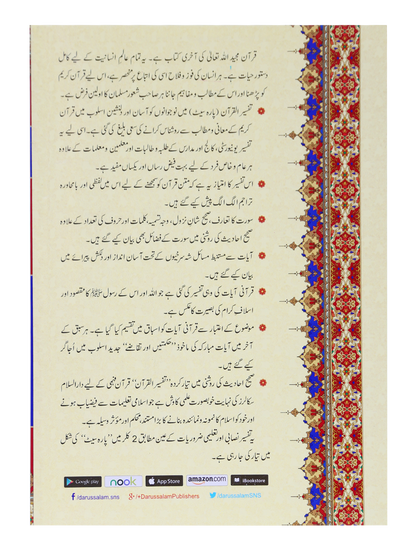 قرآن مجید اللہ تعالیٰ کی آخری کتاب ہے۔ یہ تمام عالمِ انسانیت کے لیے کامل
دستورِ حیات ہے۔ ہر انسان کی فوز و فلاح اسی کی اتباع پر منحصر ہے، اس لیے قرآن کریم
کو پڑھنا اور اس کے مطالب و مفاہیم جاننا ہر صاحبِ شعور مسلمان کا اولین فرض ہے۔
تفسیر القرآن (پارہ سیٹ) میں نوجوانوں کو آسان اور دلنشین اسلوب میں قرآن
کریم کے معانی و مطالب سے روشناس کرانے کی سعی بلیغ کی گئی ہے۔ اسی لیے یہ
تفسیر یونیورسٹی، کالج اور مدارس کے طلبہ و طالبات اور معلمین و معلمات کے علاوہ
ہر عام و خاص فرد کے لیے بہت فیض رساں اور یکساں مفید ہے۔
اس تفسیر کا امتیاز یہ ہے کہ متنِ قرآن کو سمجھنے کے لیے اس میں لفظی اور بامحاورہ
تراجم الگ الگ پیش کیے گئے ہیں۔
سورت کا تعارف، صحیح شانِ نزول، وجہ تسمیہ، کلمات اور حروف کی تعداد کے علاوہ
صحیح احادیث کی روشنی میں سورت کے فضائل بھی بیان کیے گئے ہیں۔
آیات سے مستنبط مسائل شہ سرخیوں کے تحت آسان انداز اور دلکش پیرائے میں
بیان کیے گئے ہیں۔
قرآنی آیات کی وہی تفسیر کی گئی ہے جو اللہ اور اس کے رسول ﷺ کا مقصود اور
اسلاف کرام کی بصیرت کا عکس ہے۔
موضوع کے اعتبار سے قرآنی آیات کو اسباق میں تقسیم کیا گیا ہے۔ ہر سبق کے
آخر میں آیات مبارکہ کی ماخوذ ’’حکمتیں اور تقاضے‘‘ جدید اسلوب میں اُجاگر
کیے گئے ہیں۔
صحیح احادیث کی روشنی میں تیار کردہ ’’تفسیر القرآن‘‘ قرآن فہمی کے لیے دارالسلام
سکالرز کی نہایت خوبصورت علمی کاوش ہے جو اسلامی تعلیمات سے فیضیاب ہونے
اور خود کو اسلام کا نمونہ و نمائندہ بنانے کا بڑا مستند، محکم اور مؤثر وسیلہ ہے۔
یہ تفسیر نصابی اور تعلیمی ضروریات کے عین مطابق 2 کلر میں ’’پارہ سیٹ‘‘ کی شکل
میں تیار کی جا رہی ہے۔
Google play nook App Store amazon.com iBookstore
f /darussalam.sns g+ /+DarussalamPublishers /darussalamSNS